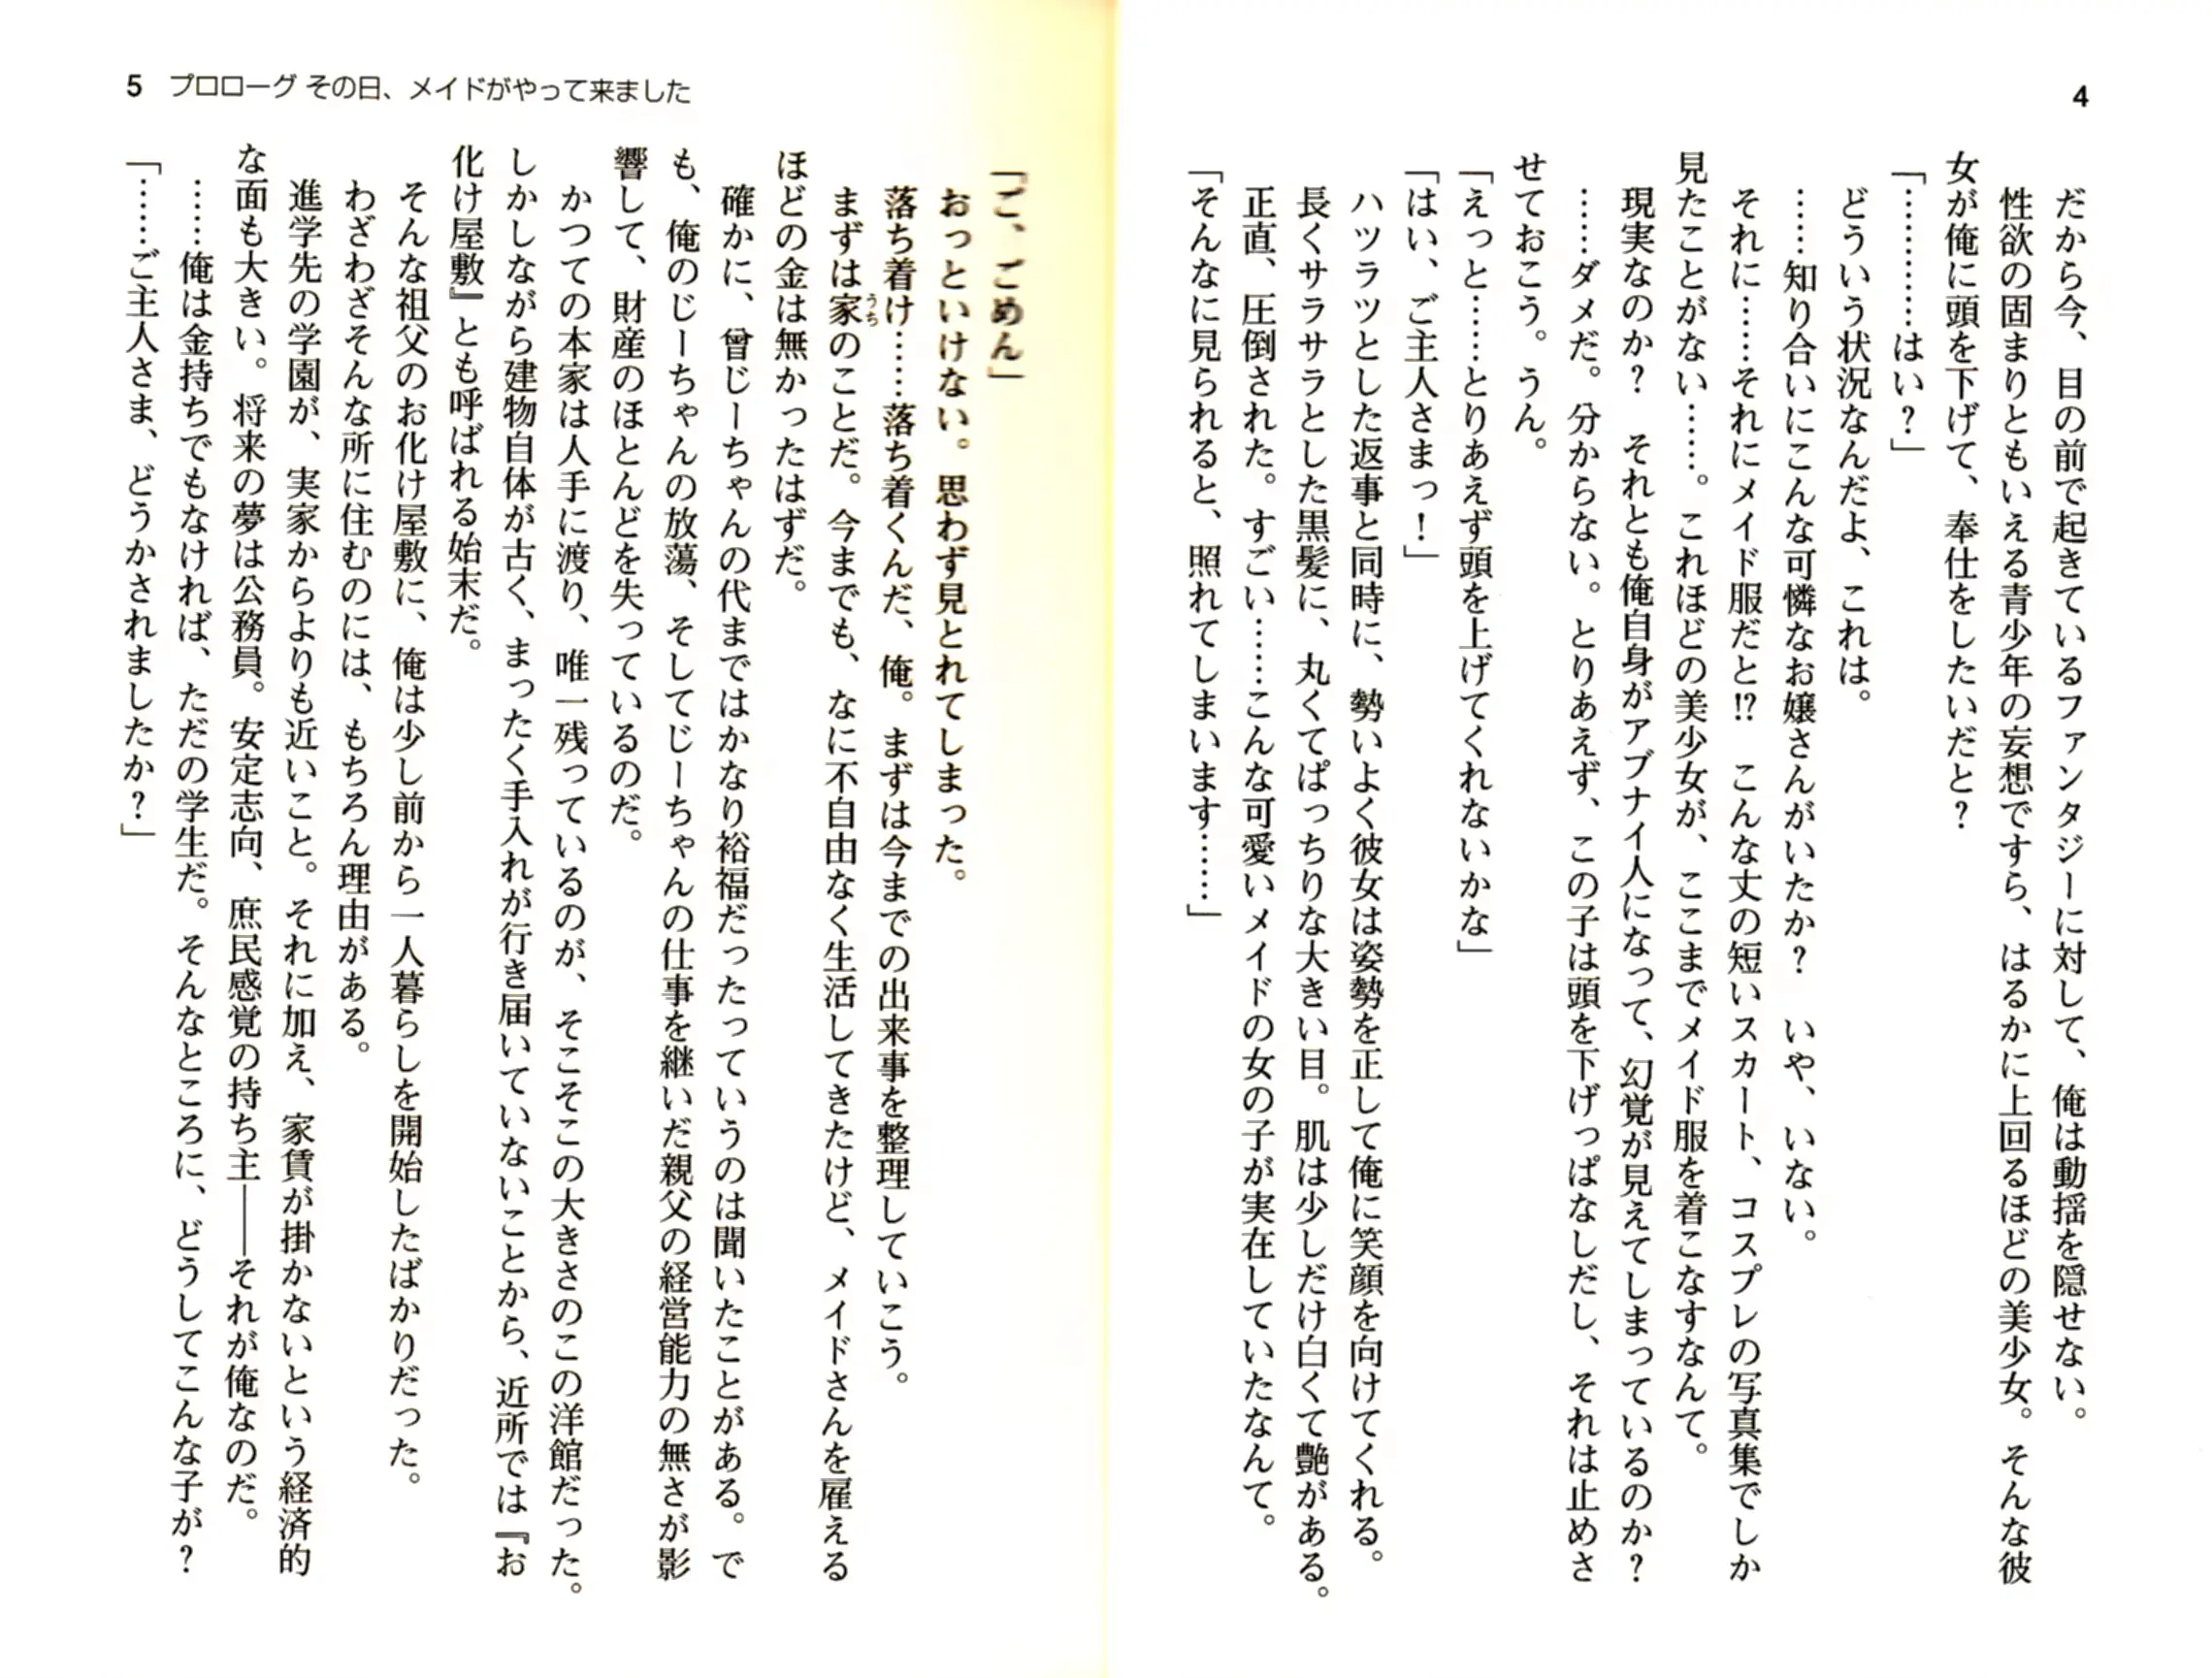 4
だから今、目の前で起きているファンタジーに対して、俺は動揺を隠せない。
性欲の固まりともいえる青少年の妄想ですら、はるかに上回るほどの美少女。そんな彼
女が俺に頭を下げて、奉仕をしたいだと？
「…………はい？」
どういう状況なんだよ、これは。
……知り合いにこんな可憐なお嬢さんがいたか？　いや、いない。
それに……それにメイド服だと!?　こんな丈の短いスカート、コスプレの写真集でしか
見たことがない……。これほどの美少女が、ここまでメイド服を着こなすなんて。
現実なのか？　それとも俺自身がアブナイ人になって、幻覚が見えてしまっているのか？
……ダメだ。分からない。とりあえず、この子は頭を下げっぱなしだし、それは止めさ
せておこう。うん。
「えっと……とりあえず頭を上げてくれないかな」
「はい、ご主人さまっ！」
ハツラツとした返事と同時に、勢いよく彼女は姿勢を正して俺に笑顔を向けてくれる。
長くサラサラとした黒髪に、丸くてぱっちりな大きい目。肌は少しだけ白くて艶がある。
正直、圧倒された。すごい……こんな可愛いメイドの女の子が実在していたなんて。
「そんなに見られると、照れてしまいます……」
5 プロローグ その日、メイドがやって来ました
「ご、ごめん」
おっといけない。思わず見とれてしまった。
落ち着け……落ち着くんだ、俺。まずは今までの出来事を整理していこう。
まずは家うちのことだ。今までも、なに不自由なく生活してきたけど、メイドさんを雇える
ほどの金は無かったはずだ。
確かに、曾じーちゃんの代まではかなり裕福だったっていうのは聞いたことがある。で
も、俺のじーちゃんの放蕩、そしてじーちゃんの仕事を継いだ親父の経営能力の無さが影
響して、財産のほとんどを失っているのだ。
かつての本家は人手に渡り、唯一残っているのが、そこそこの大きさのこの洋館だった。
しかしながら建物自体が古く、まったく手入れが行き届いていないことから、近所では『お
化け屋敷』とも呼ばれる始末だ。
そんな祖父のお化け屋敷に、俺は少し前から一人暮らしを開始したばかりだった。
わざわざそんな所に住むのには、もちろん理由がある。
進学先の学園が、実家からよりも近いこと。それに加え、家賃が掛かないという経済的
な面も大きい。将来の夢は公務員。安定志向、庶民感覚の持ち主――それが俺なのだ。
……俺は金持ちでもなければ、ただの学生だ。そんなところに、どうしてこんな子が？
「……ご主人さま、どうかされましたか？」